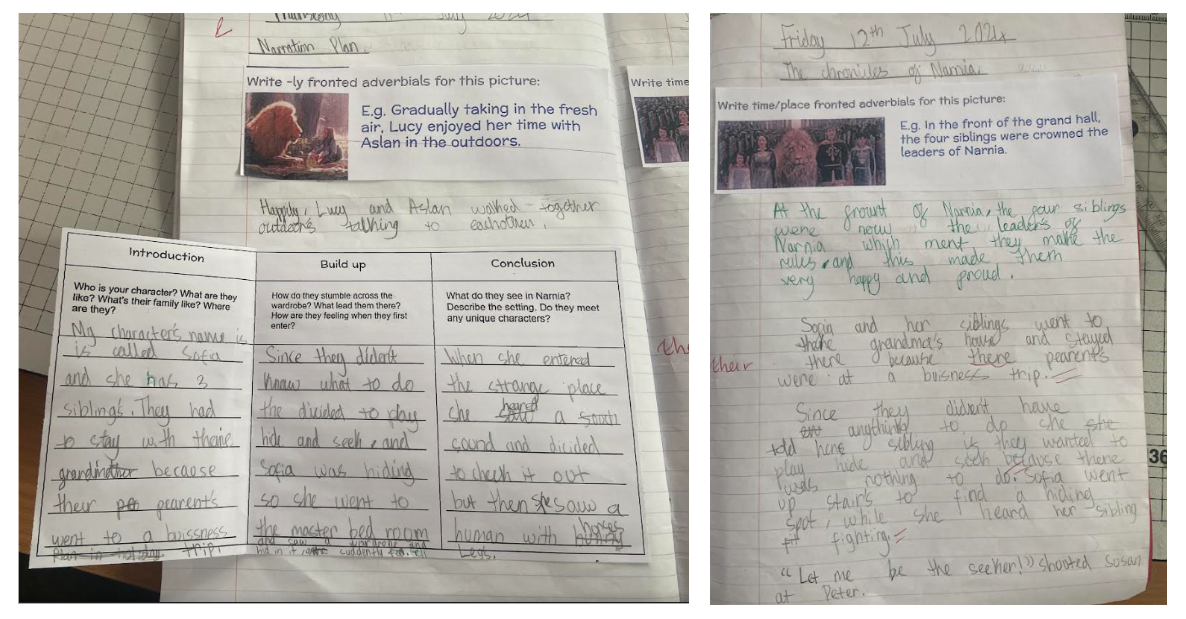 Thursday 11th July 2024
Narration Plan.
Write -ly fronted adverbials for this picture:
E.g. Gradually taking in the fresh
air, Lucy enjoyed her time with
Aslan in the outdoors.
Write time
Happily, Lucy and Aslan walked together
outdoors talking to eachother.
Introduction
Who is your character? What are they
like? What's their family like? Where
are they?
My character's name is
is called Sofia
and she has 3
siblings. They had
to stay with theire
grandmother because
their pearent's
went to a buissness
trip.
Build up
How do they stumble across the
wardrobe? What lead them there?
How are they feeling when they first
enter?
Since they didern't
know what to do
the divided to play
hide and seek, and
Sofia was hiding
so she went to
the master bed room
and saw a wardrobe and
hid in it suddently
Conclusion
What do they see in Narnia?
Describe the setting. Do they meet
any unique characters?
When she entered
the strange place
she heared a
sound and divided
to check it out
but then she saw a
human with horses
Legs.
Friday 12th July 2024
The chronicles of Narnia
Write time/place fronted adverbials for this picture:
E.g. In the front of the grand hall,
the four siblings were crowned the
leaders of Narnia.
At the frount of Narnia, the four siblings
were now the leaders of
Narnia which ment they make the
rules, and this made them
very happy and proud.
Sofia and her siblings went to
there grandma's house and stayed
their
there because there pearent's
were at a buisness trip.
Since they didern't have
anything to do she she
told here sibling if they wanted to
play hide and seek because there
was nothing to do. Sofia went
up stairs to find a hiding
spot, while she heard her sibling
fighting.
"Let me be the seeker!" shooted Susan
at Peter.
36